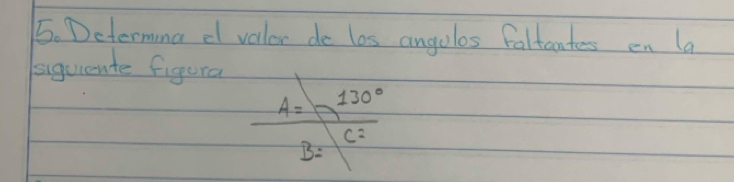 5. Determina el valor de los angulos faltantes en la
siguiente figura
A= 130°
B= C=